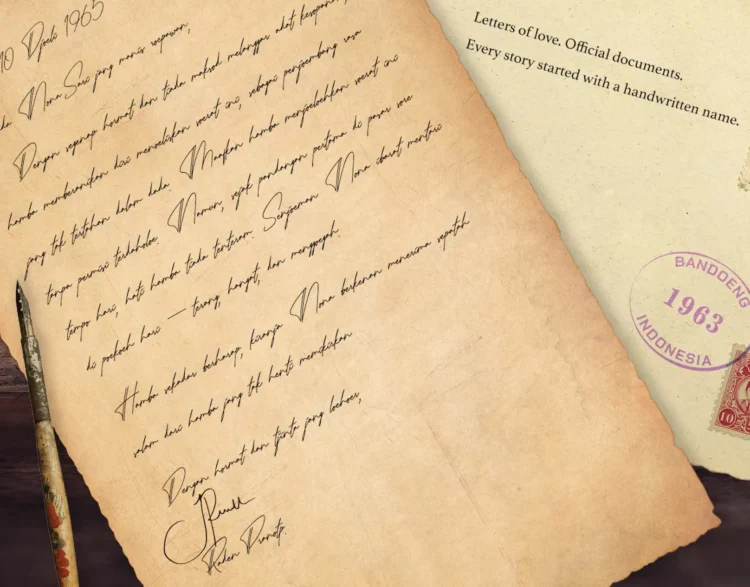 10 Djoeli 1965
Nona Sari jang manis roepawan,
Dengan segenap hormat dan tiada maksoed melanggar adat kesopanan,
hamba memberanikan diri menoeliskan soerat ini, sebagai penjoembang rasa
jang tak tertahan dalam dada. Maafkan hamba menjoeloehkan soerat ini
tanpa permisi terdahoeloe. Namun, sejak pandangan pertama di pasar sore
tempo hari, hati hamba tiada tenteram. Senjoeman Nona ibarat mentari
di poekoel hari — terang, hangat, dan menggoegah.
Hamba sekadar berharap, kiranja Nona berkenan menerima sepatah
salam dari hamba jang tak henti memikirkan
Dengan hormat dan tjinta jang loehoer,
Raden Pranoto.
Letters of love. Official documents.
Every story started with a handwritten name.
BANDOENG
1963
INDONESIA
10